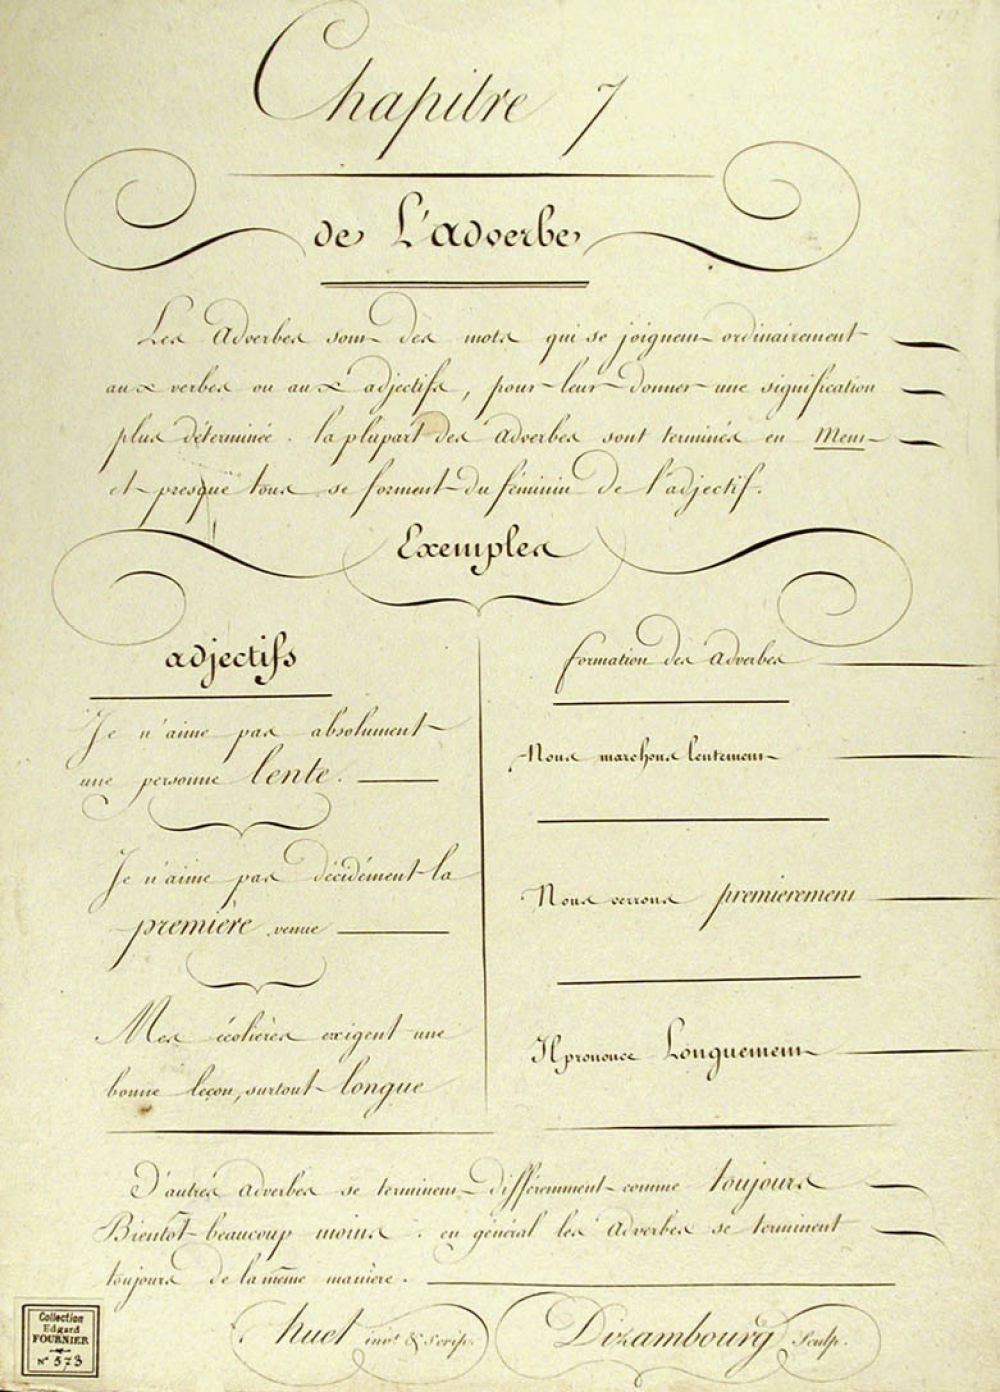 Chapitre 7
de L'adverbe
Les adverbes sont des mots qui se joignent ordinairement
aux verbes ou aux adjectifs, pour leur donner une signification
plus déterminée. la plupart des adverbes sont terminés en Ment
et presque tous se forment du féminin de l'adjectif.
Exemples
adjectifs
Je n'aime pas absolument
une personne lente.
Je n'aime pas décidément la
première venue
Mes écolières exigent une
bonne leçon, surtout longue
formation des adverbes
Nous marchons lentement
Nous verrons premierement
Il prononce Longuement
D'autres adverbes se terminent différemment comme toujours
Bientôt beaucoup moins. en général les adverbes se terminent
toujours de la même manière.
huet invt & Scrip. Dizambourg Sculp.
Collection
Edgard
FOURNIER
N° 573